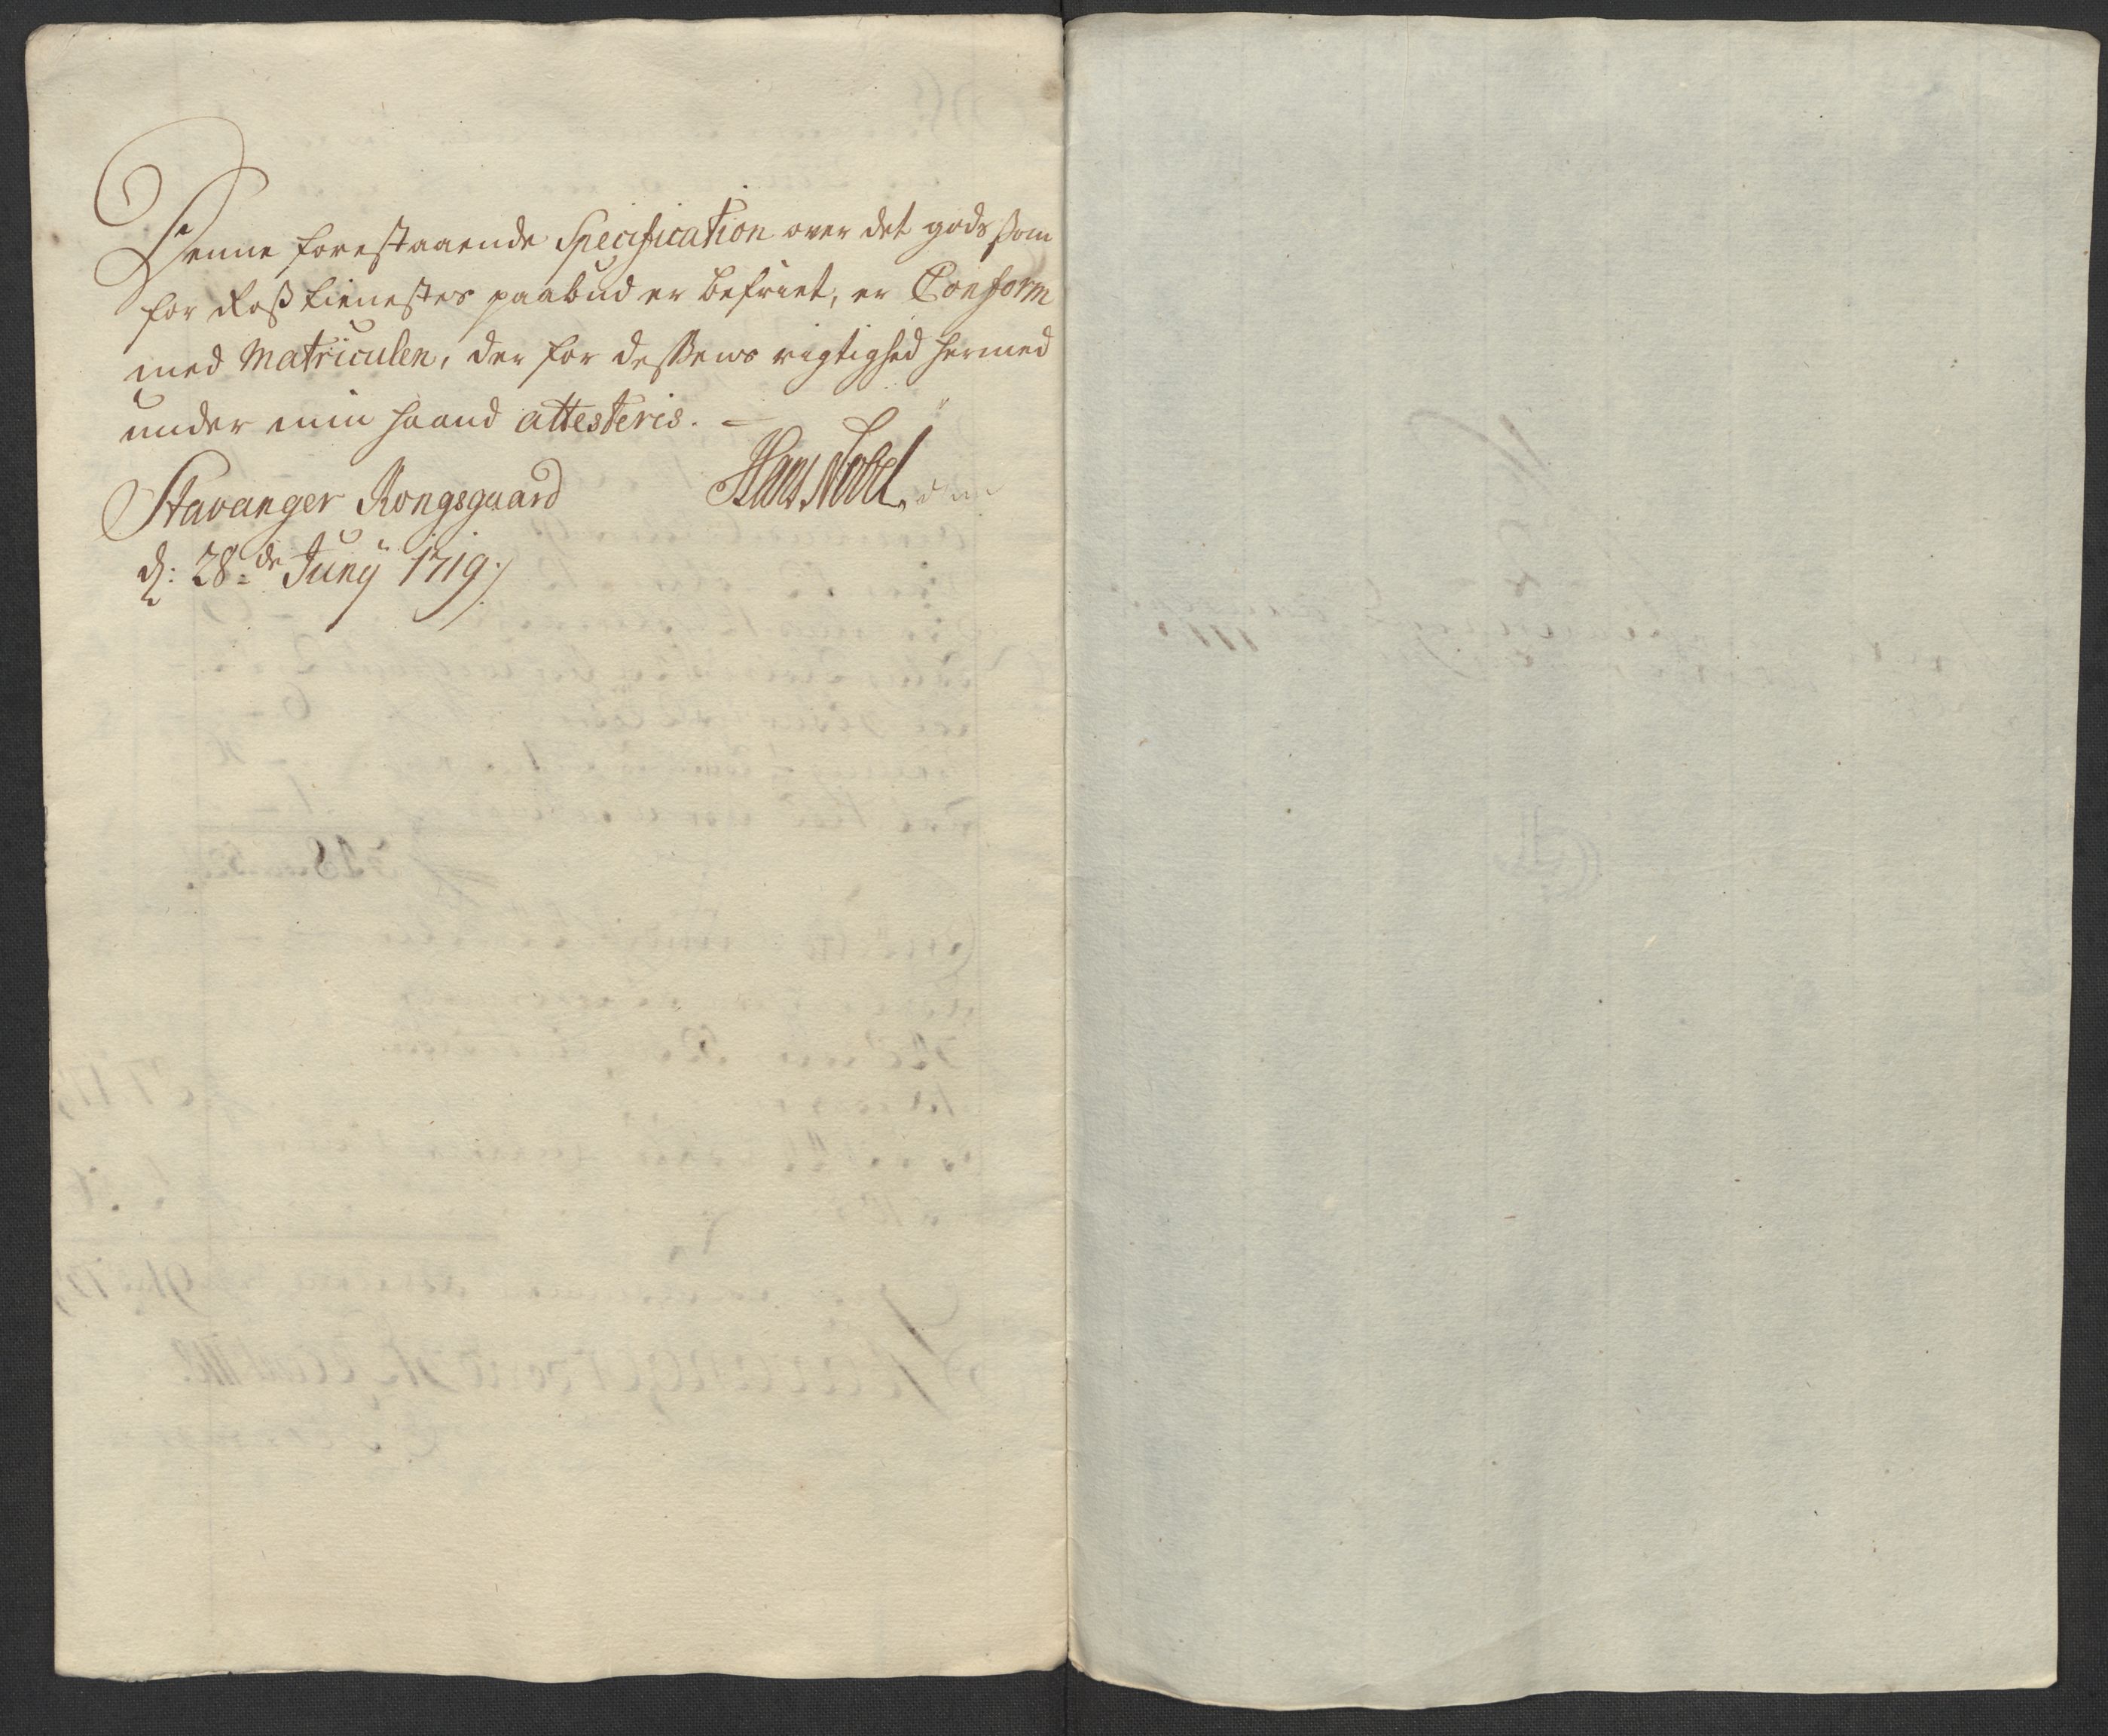 Denne forestaaende Specification over det gods som
for Roß tienestes paabud er befriet, er Conform
med Matriculen, der for dessens rigtighed hermed
under min haand attesteris. –
Stavanger Kongsgaard
Hans Nobel
d: 28de Junÿ 1719.